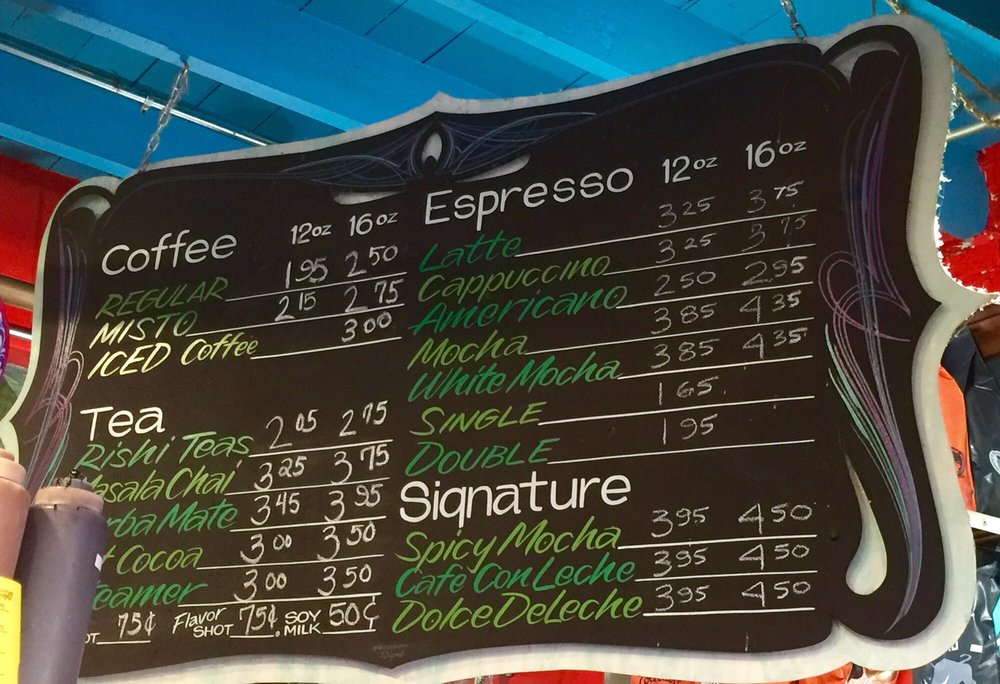 Coffee 12oz 16oz
REGULAR 1 95 2 50
MISTO 2 15 2 75
ICED Coffee 3 00
Tea
Rishi Teas 2 05 2 75
asala Chai 3 25 3 75
rba Mate 3 45 3 95
t Cocoa 3 00 3 50
eamer 3 00 3 50
OT 75¢ Flavor SHOT 75¢. SOY MILK 50¢
Espresso 12oz 16oz
Latte 3 25 3 75
Cappuccino 3 25 3 75
Americano 2 50 2 95
Mocha 3 85 4 35
White Mocha 3 85 4 35
SINGLE 1 65
DOUBLE 1 95
Signature
Spicy Mocha 3 95 4 50
Cafe Con Leche 3 95 4 50
Dolce DeLeche 3 95 4 50